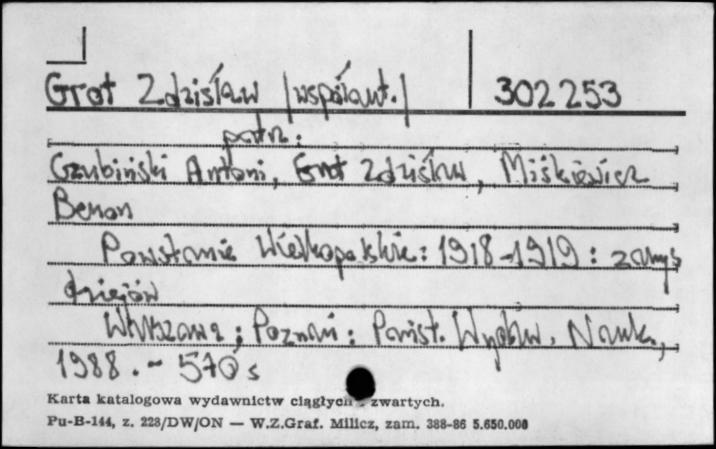 Grot Zdzisław /współaut./ 302253
patrz:
Czubiński Antoni, Grot Zdzisław, Miśkiewicz
Benon
Powstanie Wielkopolskie: 1918-1919: zarys
dziejów
Warszawa; Poznań: Państ. Wydaw. Nauk.,
1988. - 570 s
Karta katalogowa wydawnictw ciągłych i zwartych.
Pu-B-144, z. 223/DW/ON — W.Z.Graf. Milicz, zam. 388-86 5.650.000